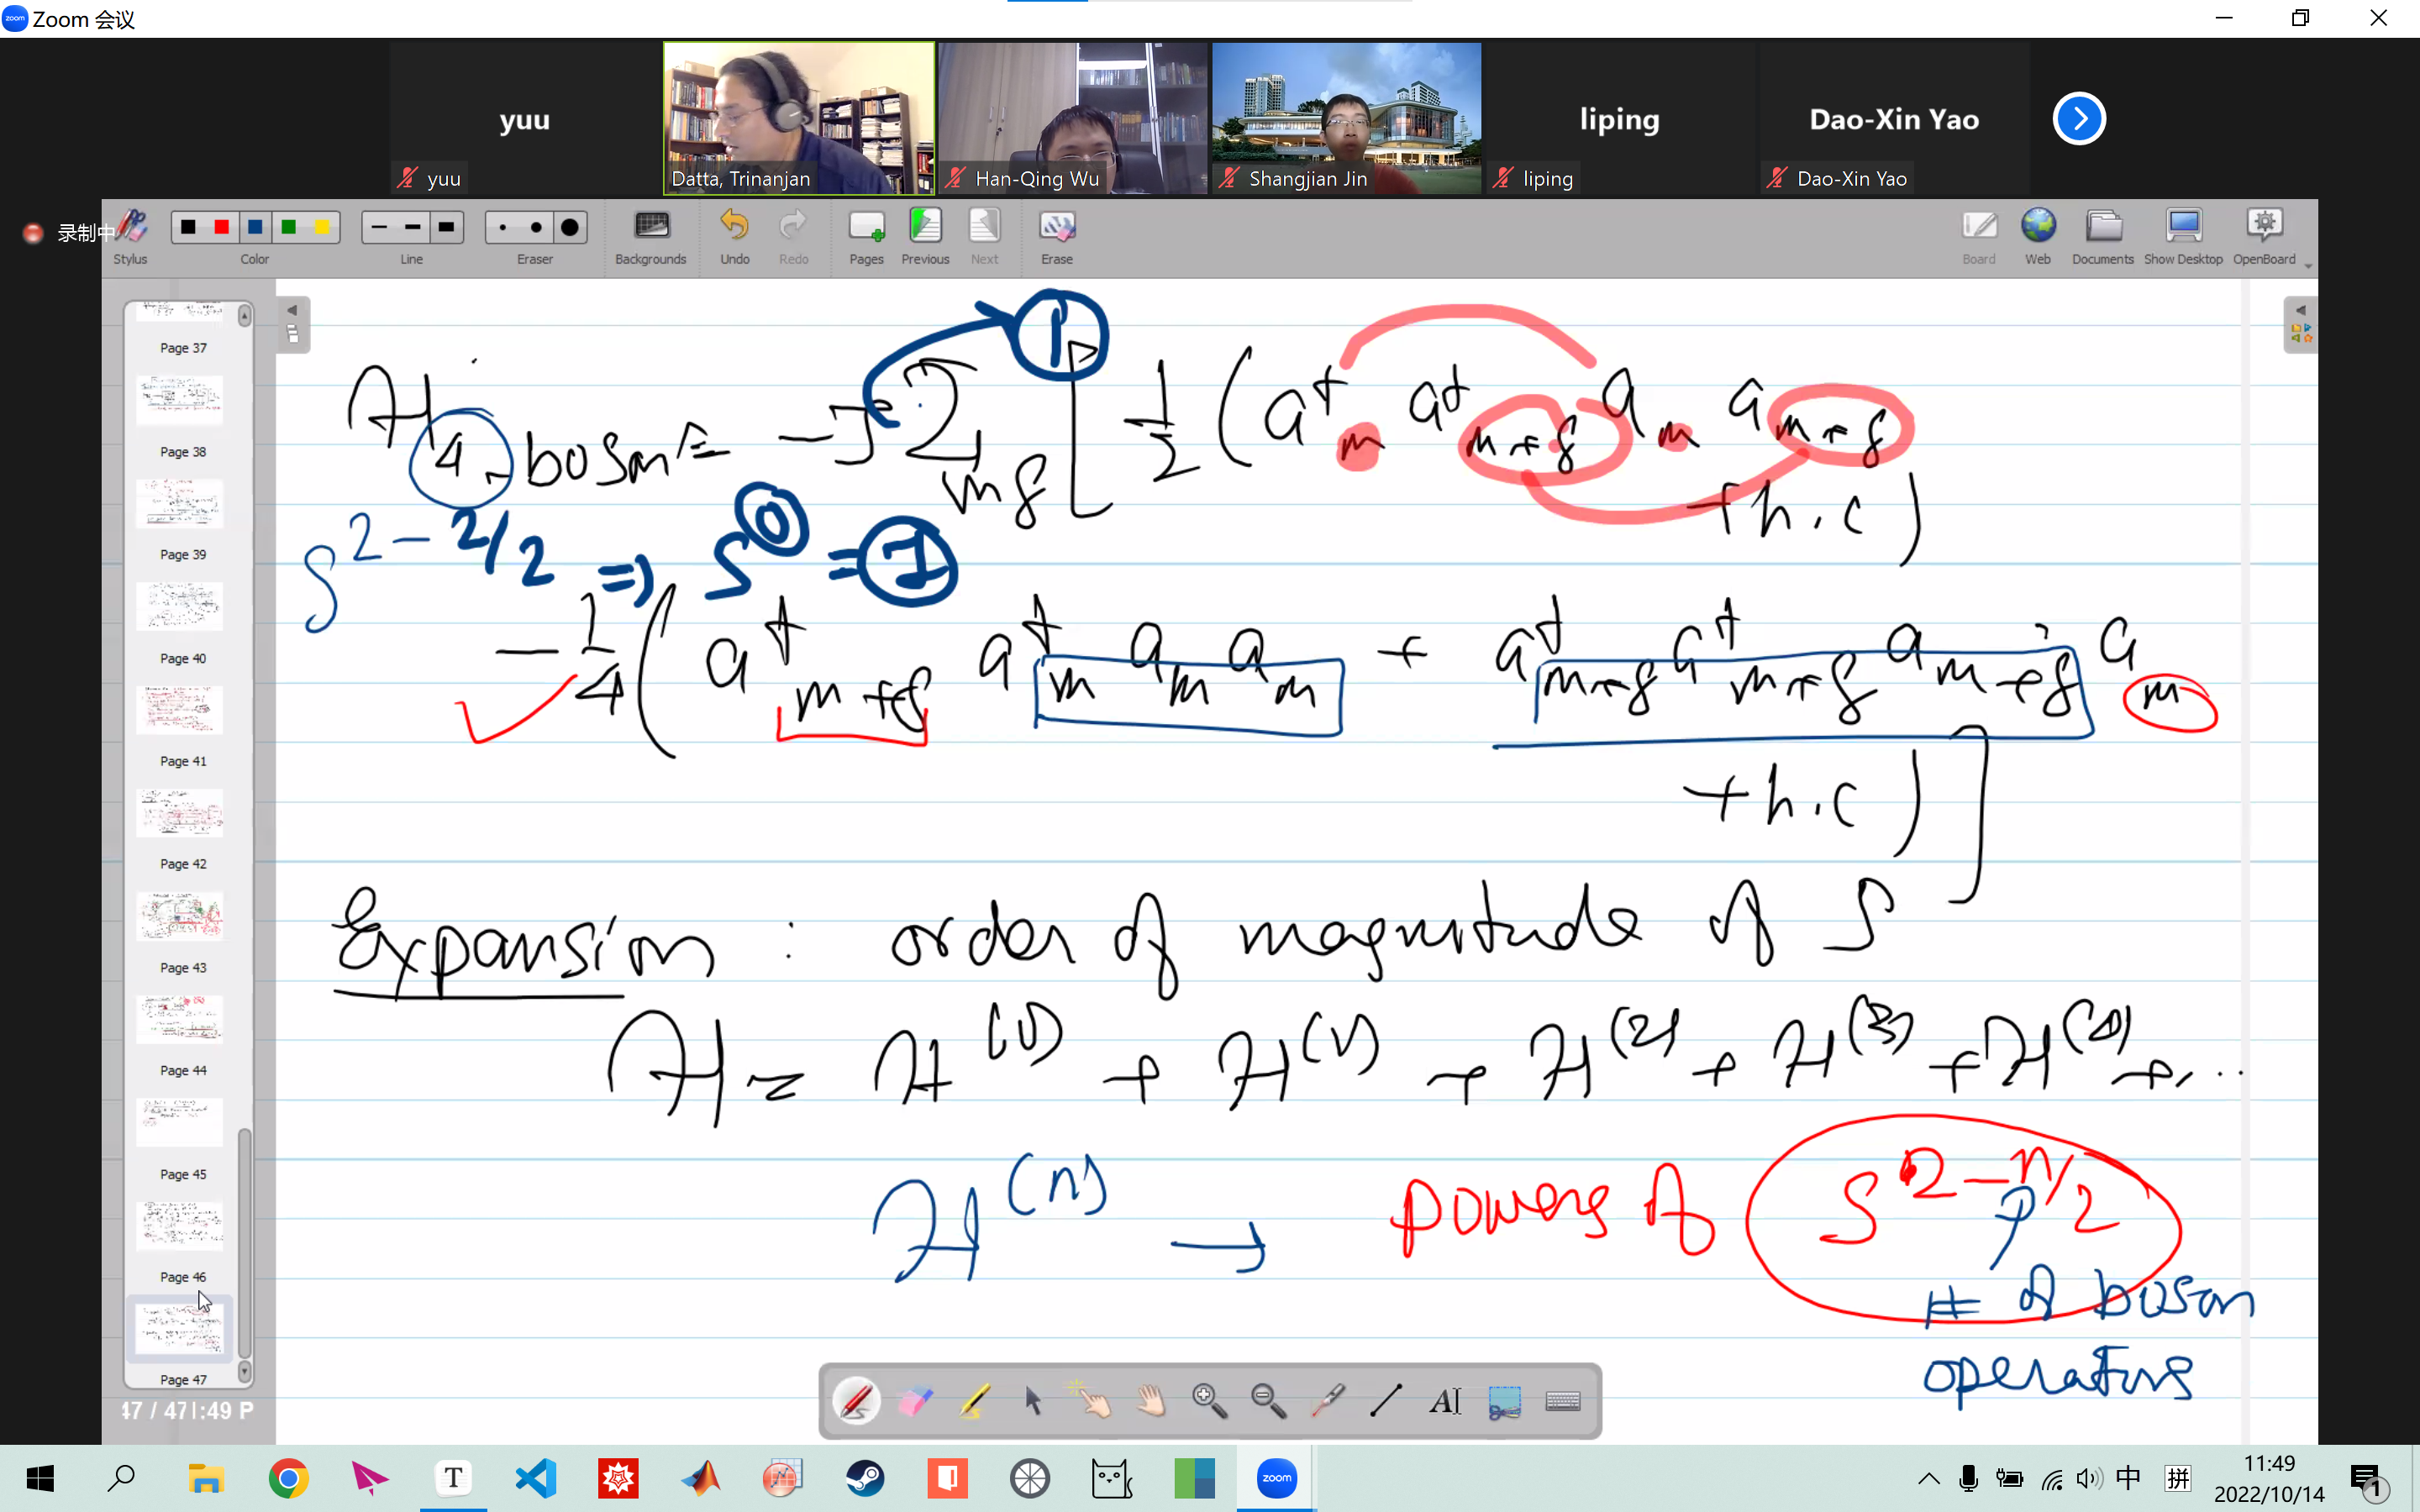 Zoom 会议
yuu
liping
Dao-Xin Yao
yuu
Datta, Trinanjan
Han-Qing Wu
Shangjian Jin
liping
Dao-Xin Yao
录制中
Stylus
Color
Line
Eraser
Backgrounds
Undo
Redo
Pages
Previous
Next
Erase
Board
Web
Documents
Show Desktop
OpenBoard
Page 37
Page 38
Page 39
Page 40
Page 41
Page 42
Page 43
Page 44
Page 45
Page 46
Page 47
47 / 47
1:49 P
H 4-boson = -J Σ mδ [ 1/2 ( a† m a† m+δ a m a m+δ
+ h.c )
S^2-2/2 => S^0 = 1
- 1/4 ( a† m+δ a† m a m a m + a† m+δ a† m+δ a m+δ a m
+ h.c ) ]
Expansion : order of magnitude of S
H = H^(0) + H^(1) + H^(2) + H^(3) + H^(4) + ...
H^(n) → powers of S^2-n/2
# of boson
operators
T
zoom
中
拼
11:49
2022/10/14
1